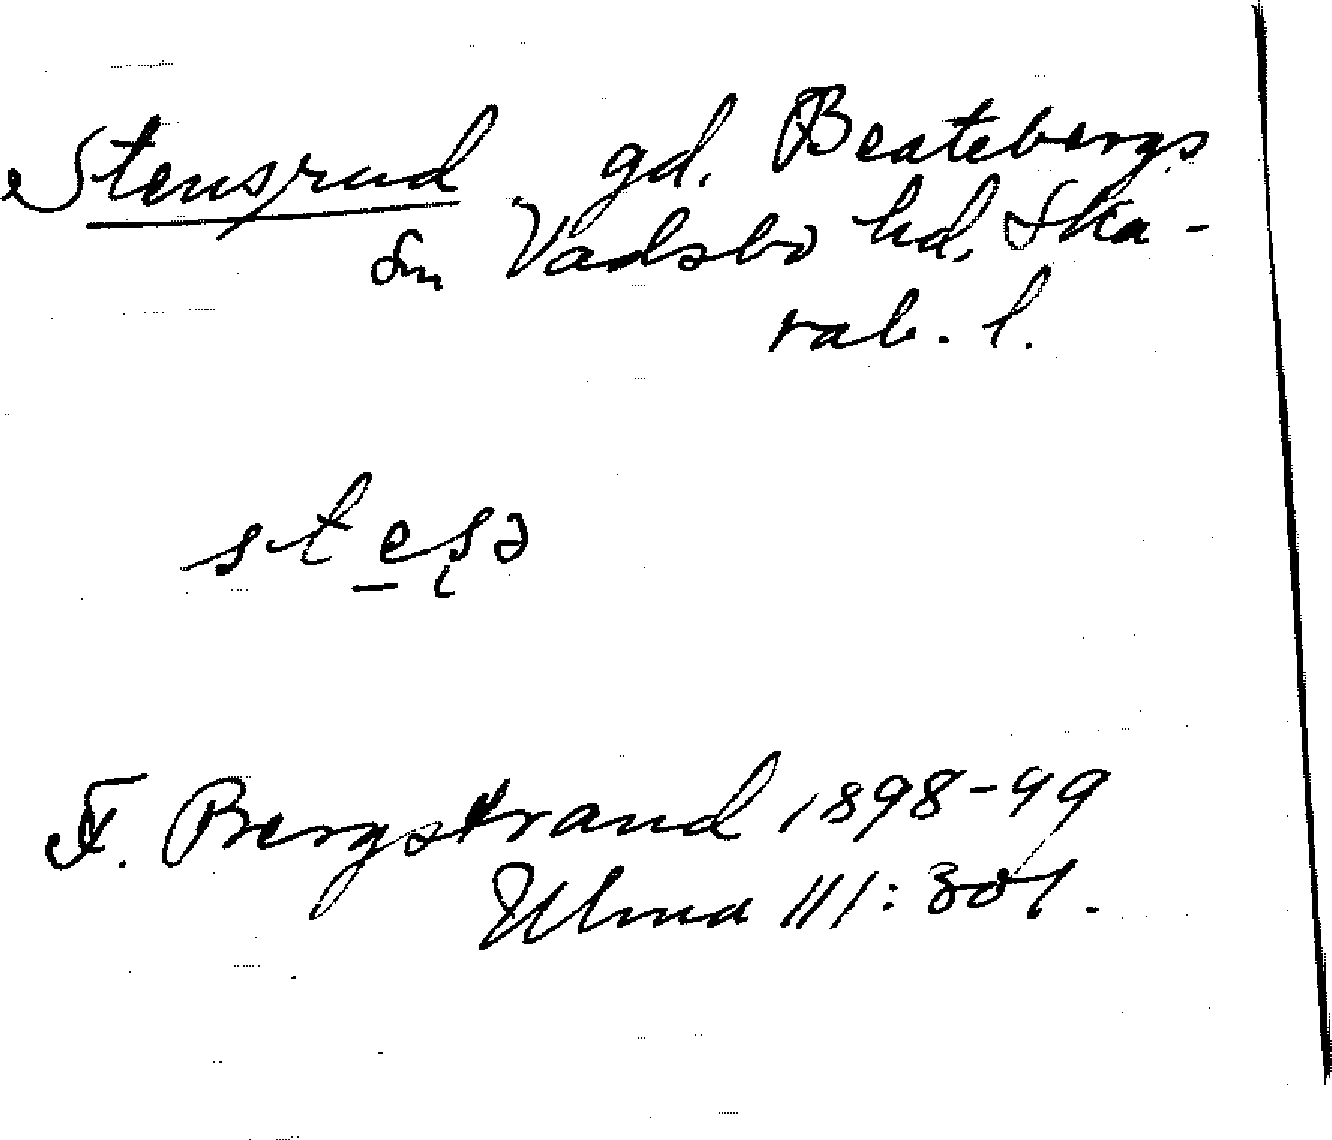 Stensrud gd. Beatebergs
sn Vadsbo hd, Ska-
rab. l.
F. Bergstrand 1898-99
Ulma 111:301.